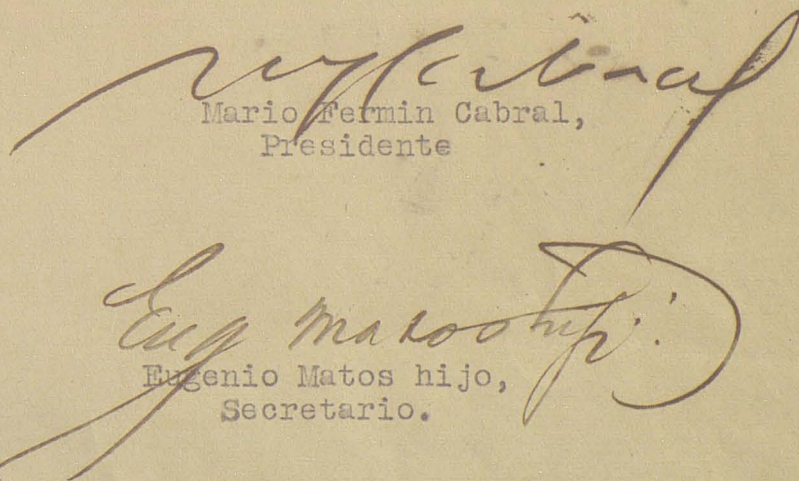 MFCabral
Mario Fermin Cabral,
Presidente
Eug Matos hijo.
Eugenio Matos hijo,
Secretario.